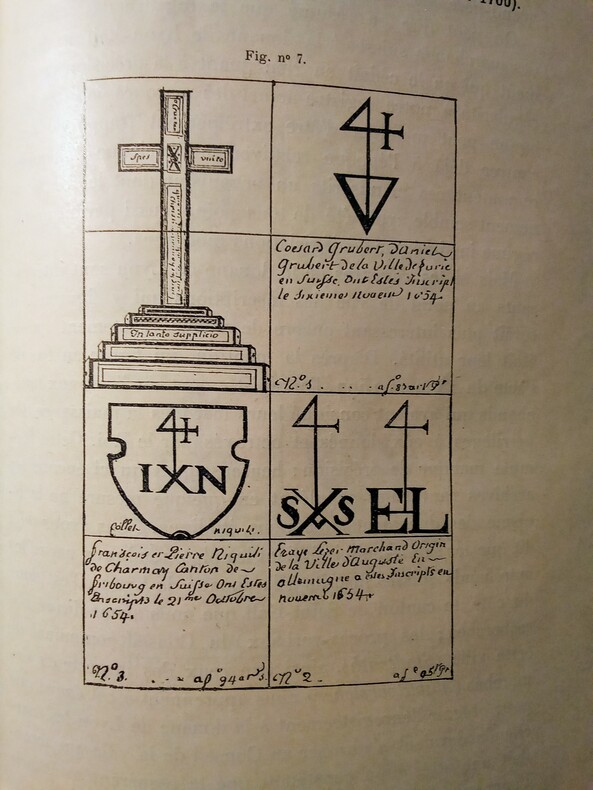 1700).
Fig. nº 7.
Spes
unito
In tanto supplicio
Coesard Grubert, daniel
Grubert de la Ville de
en Suisse, Ont Estes Inscript
le sixiemes Novem 1654
Nº 1
IXN
collet
niquili.
SXS EL
françois et Pierre Niquili
de Charmay Canton de
fribourg en Suisse Ont Estes
Enscripts le 21me Octobre
1654.
Nº 3. aſº 94
Marchand Origin
de la Ville d'Auguste En
allemagne a Estes Inscripts en
novemb 1654
Nº 2